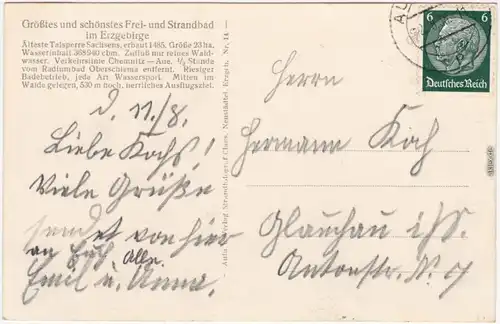 Größtes und schönstes Frei- und Strandbad
im Erzgebirge
Älteste Talsperre Sachsens, erbaut 1485. Größe 23 ha.
Wasserinhalt 368940 cbm. Zufluß nur reines Wald-
wasser. Verkehrslinie Chemnitz—Aue. ½ Stunde
vom Radiumbad Oberschlema entfernt. Riesiger
Badebetrieb, jede Art Wassersport. Mitten im
Walde gelegen, 530 m hoch, herrliches Ausflugsziel.
d. 11./8.
Liebe Kochs!
Viele Grüße
sendet von hier
an Euch Alle.
Emil u. Anna.
Nr. 14
AU
6 6
Deutsches Reich
Herrn
Hermann Koch
Glauchau i/S.
Antonstr. N. 7